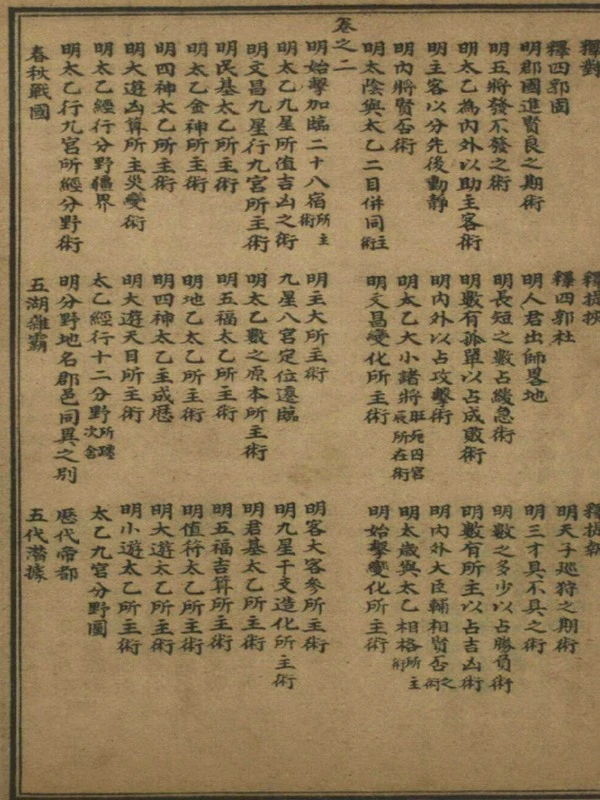 釋對 釋提挾
釋四郭固 釋四郭杜 明天子巡狩之期術
明郡國進賢良之期術 明人君出師畧地 明三才具不具之術
明五將發不發之術 明長短之數占緩急術 明數之多少以占勝負術
明太乙為內外以助主客術 明數有孤單以占成敗術 明數有所主以占吉凶術
明主客以分先後動靜 明內外以占攻擊術 明內外大臣輔相賢否之術
明內將賢否術 明太乙大小諸將旺死囚宮辰所在術 明太歲與太乙相格所主術
明太陰與太乙二目併同主術 明文昌變化所主術 明始擊變化所主術
卷之二
明始擊加臨二十八宿所主術 明主大所主術 明客大客參所主術
明太乙九星所值吉凶之術 九星八宮定位遷臨 明九星干支造化所主術
明文昌九星行九宮所主術 明太乙數之原本所主術 明君基太乙所主術
明民基太乙所主術 明五福太乙所主術 明五福吉算所主術
明太乙金神所主術 明地乙太乙所主術 明值符太乙所主術
明四神太乙所主術 明四神太乙主成歷 明大遊太乙所主術
明大遊凶算所主災變術 明大遊天目所主術 明小遊太乙所主術
明太乙經行分野疆界 太乙經行十二分野所躔次舍 太乙九宮分野圖
明太乙行九宮所經分野術 明分野地名郡邑同異之別 歷代帝都
春秋戰國 五湖雜霸 五代潛據